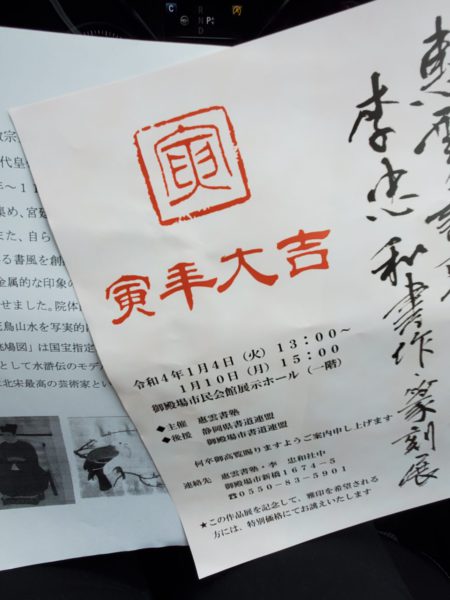 惠雲書
李忠和書作・篆刻展
寅
寅年大吉
令和4年1月4日（火）13:00～
1月10日（月）15:00
御殿場市民会館展示ホール（一階）
◆主催 惠雲書塾
◆後援 静岡県書道連盟
御殿場市書道連盟
何卒御高覧賜りますようご案内申し上げます
連絡先 惠雲書塾・李 忠和社中
御殿場市新橋1674-5
☎0550-83-5901
★この作品展を記念して、雅印を希望される
方には、特別価格にてお誂えいたします
宗
代皇
年～11
集め、宮
また、自ら
る書風を創
金属的な印象の
せました。院体
花鳥山水を写実的
鳩図」は国宝指定
として水滸伝のモデ
北宋最高の芸術家とい
C
R
N
D
P